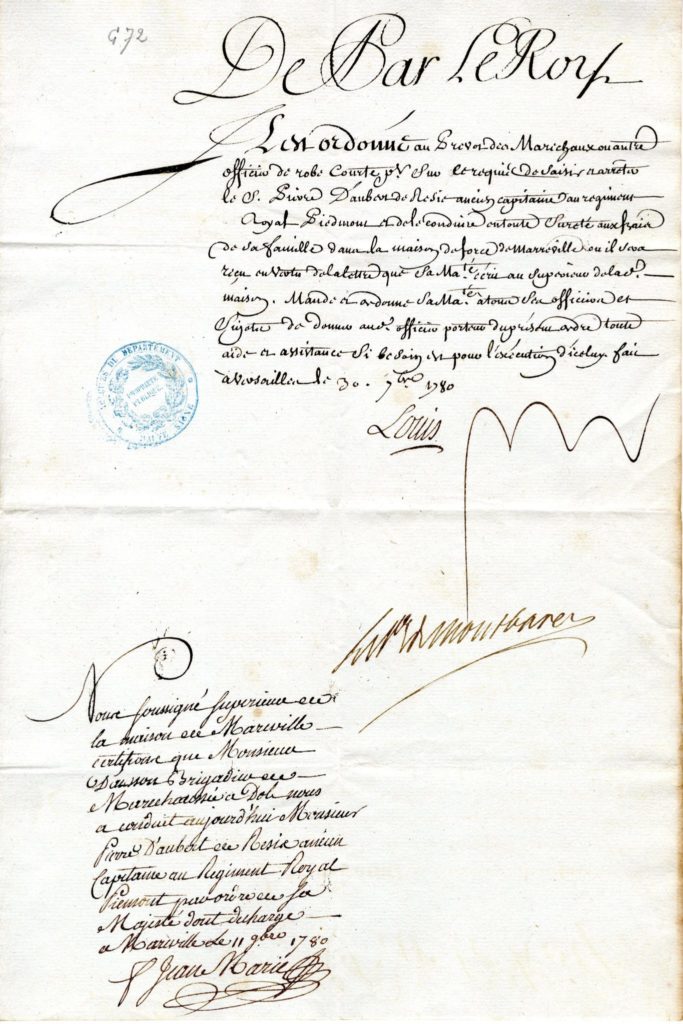 G 72
De Par Le Roy
Il est ordonné au Prevost des Marechaux ou autre
officier de robe Courte sur le requis de saisir et arreter
le S. Pierre Daubert de Resie ancien capitaine au regiment
Royal Piedmont et de le conduire en toute Sureté aux frais
de sa famille dans la maison de force de Marreville ou il sera
recu en vertu de la lettre que Sa Ma.té écrit au Superieur de lad.e
maison. Mande et ordonne Sa Ma.té a tous Ses officiers et
Sujets de donner aud. officier porteur du présent ordre toute
aide et assistance Si besoin est pour l'exécution d'icelux fait
a Versailles le 30. 7bre 1780
Louis
DU DEPARTEMENT
PROPRIETE PUBLIQUE
HAUTE SAONE
le Pce de montbarey
Nous soussigné superieur de
la maison de Mareville
certifions que Monsieur
Brigadier de
Marechaussée a Dole nous
a conduit aujourd'hui Monsieur
Pierre D'aubert de Resie ancien
Capitaine au Regiment Royal
Piemont par ordre de Sa
Majesté dont decharge
a Mariville le 11 9bre 1780
f Jean Marie